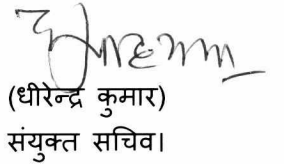 (धीरेन्द्र कुमार)
संयुक्त सचिव।